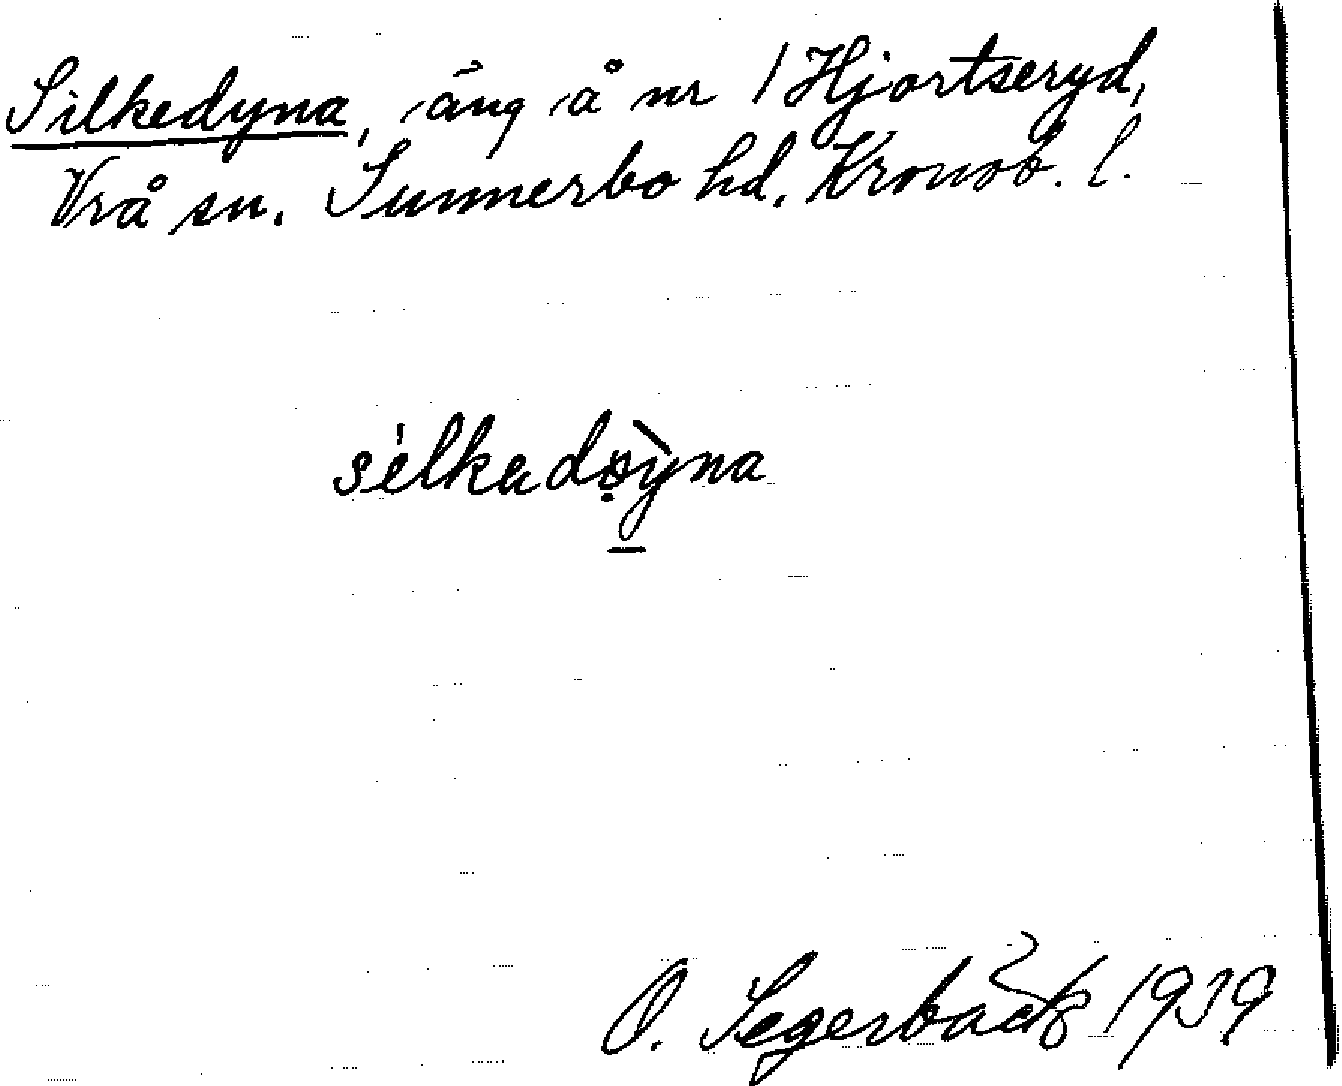 Silkedyna, äng å nr 1 Hjortseryd,
Vrå sn. Sunnerbo hd. Kronob. l.
O. Segerbäck 1939